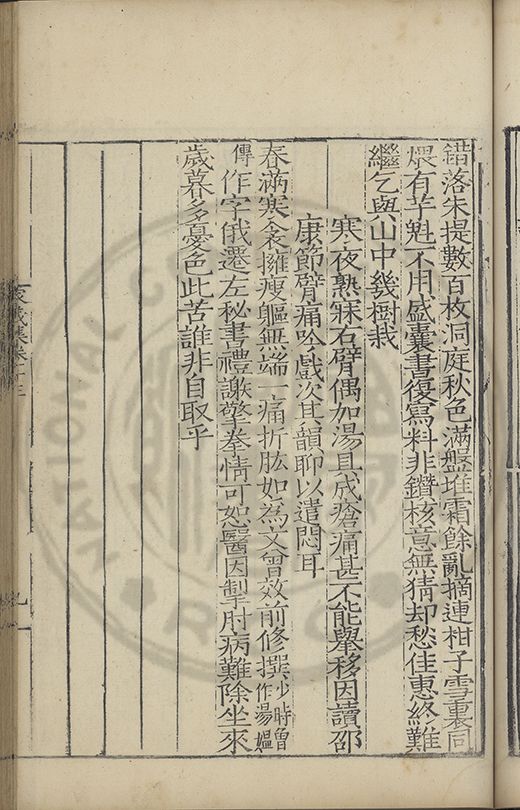 錯落朱提數百枚洞庭秋色滿盤堆霜餘亂摘連柑子雪裏同
煨有芋魁不用盛囊書復寫料非鑽核意無猜却愁佳惠終難
繼乞與山中幾樹栽
寒夜熟寐右臂偶加湯具成瘡痛甚不能舉移因讀邵
康節臂痛吟戲次其韻聊以遣悶耳
春滿寒衾擁瘦軀無端一痛折肱如為文曾效前修撰少時曾作湯媼
傳作字俄遷左秘書禮謝擎拳情可恕醫因掣肘病難除坐來
歲暮多憂色此苦誰非自取乎